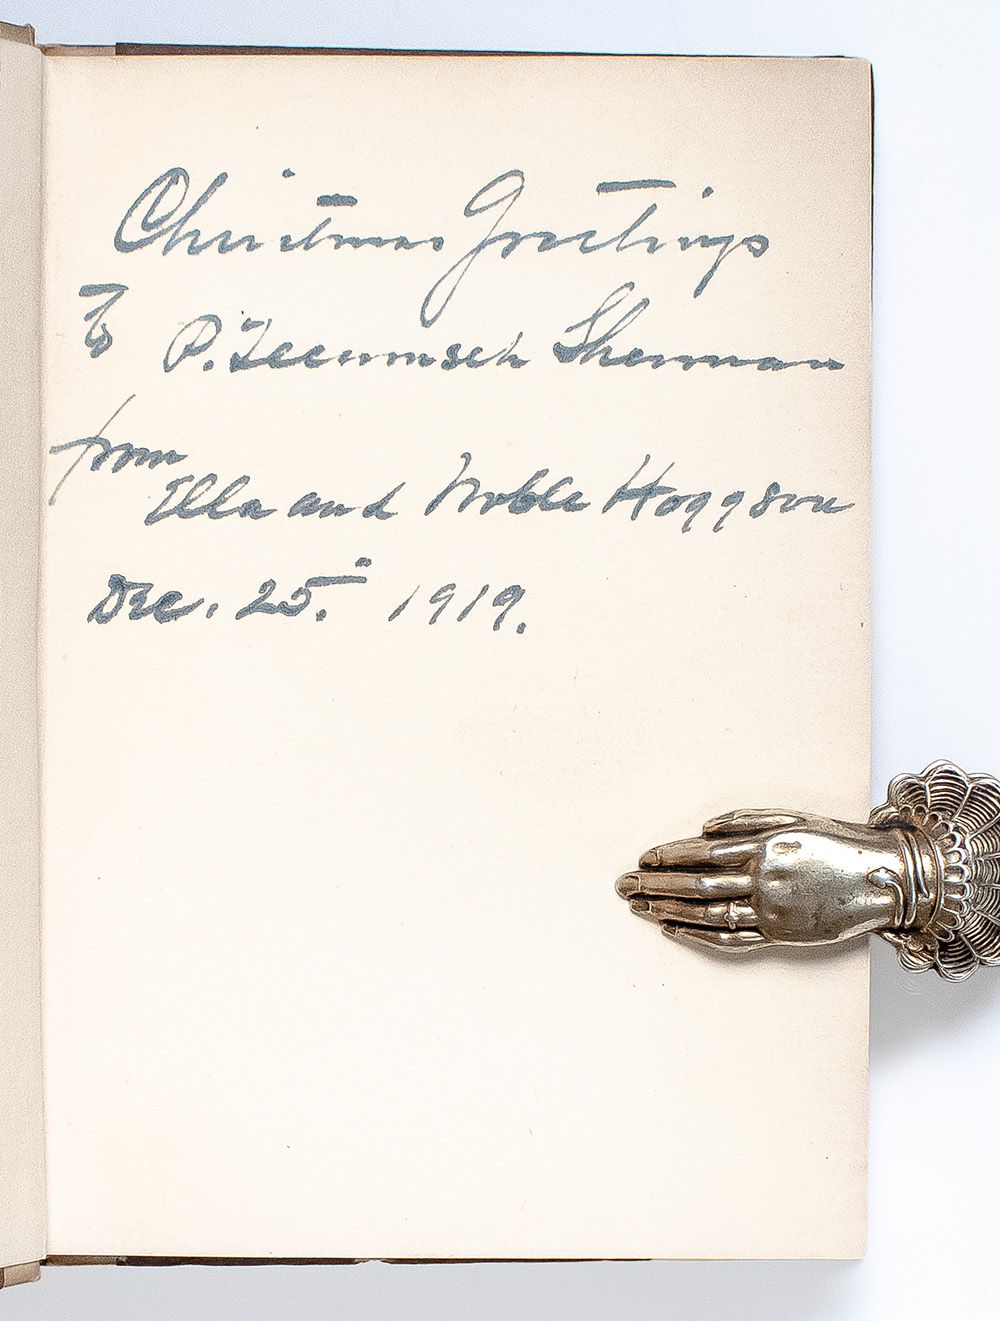 Christmas Greetings
To P. Tecumseh Sherman
from
Ella and Noble Hoggson
Dec. 25. 1919.